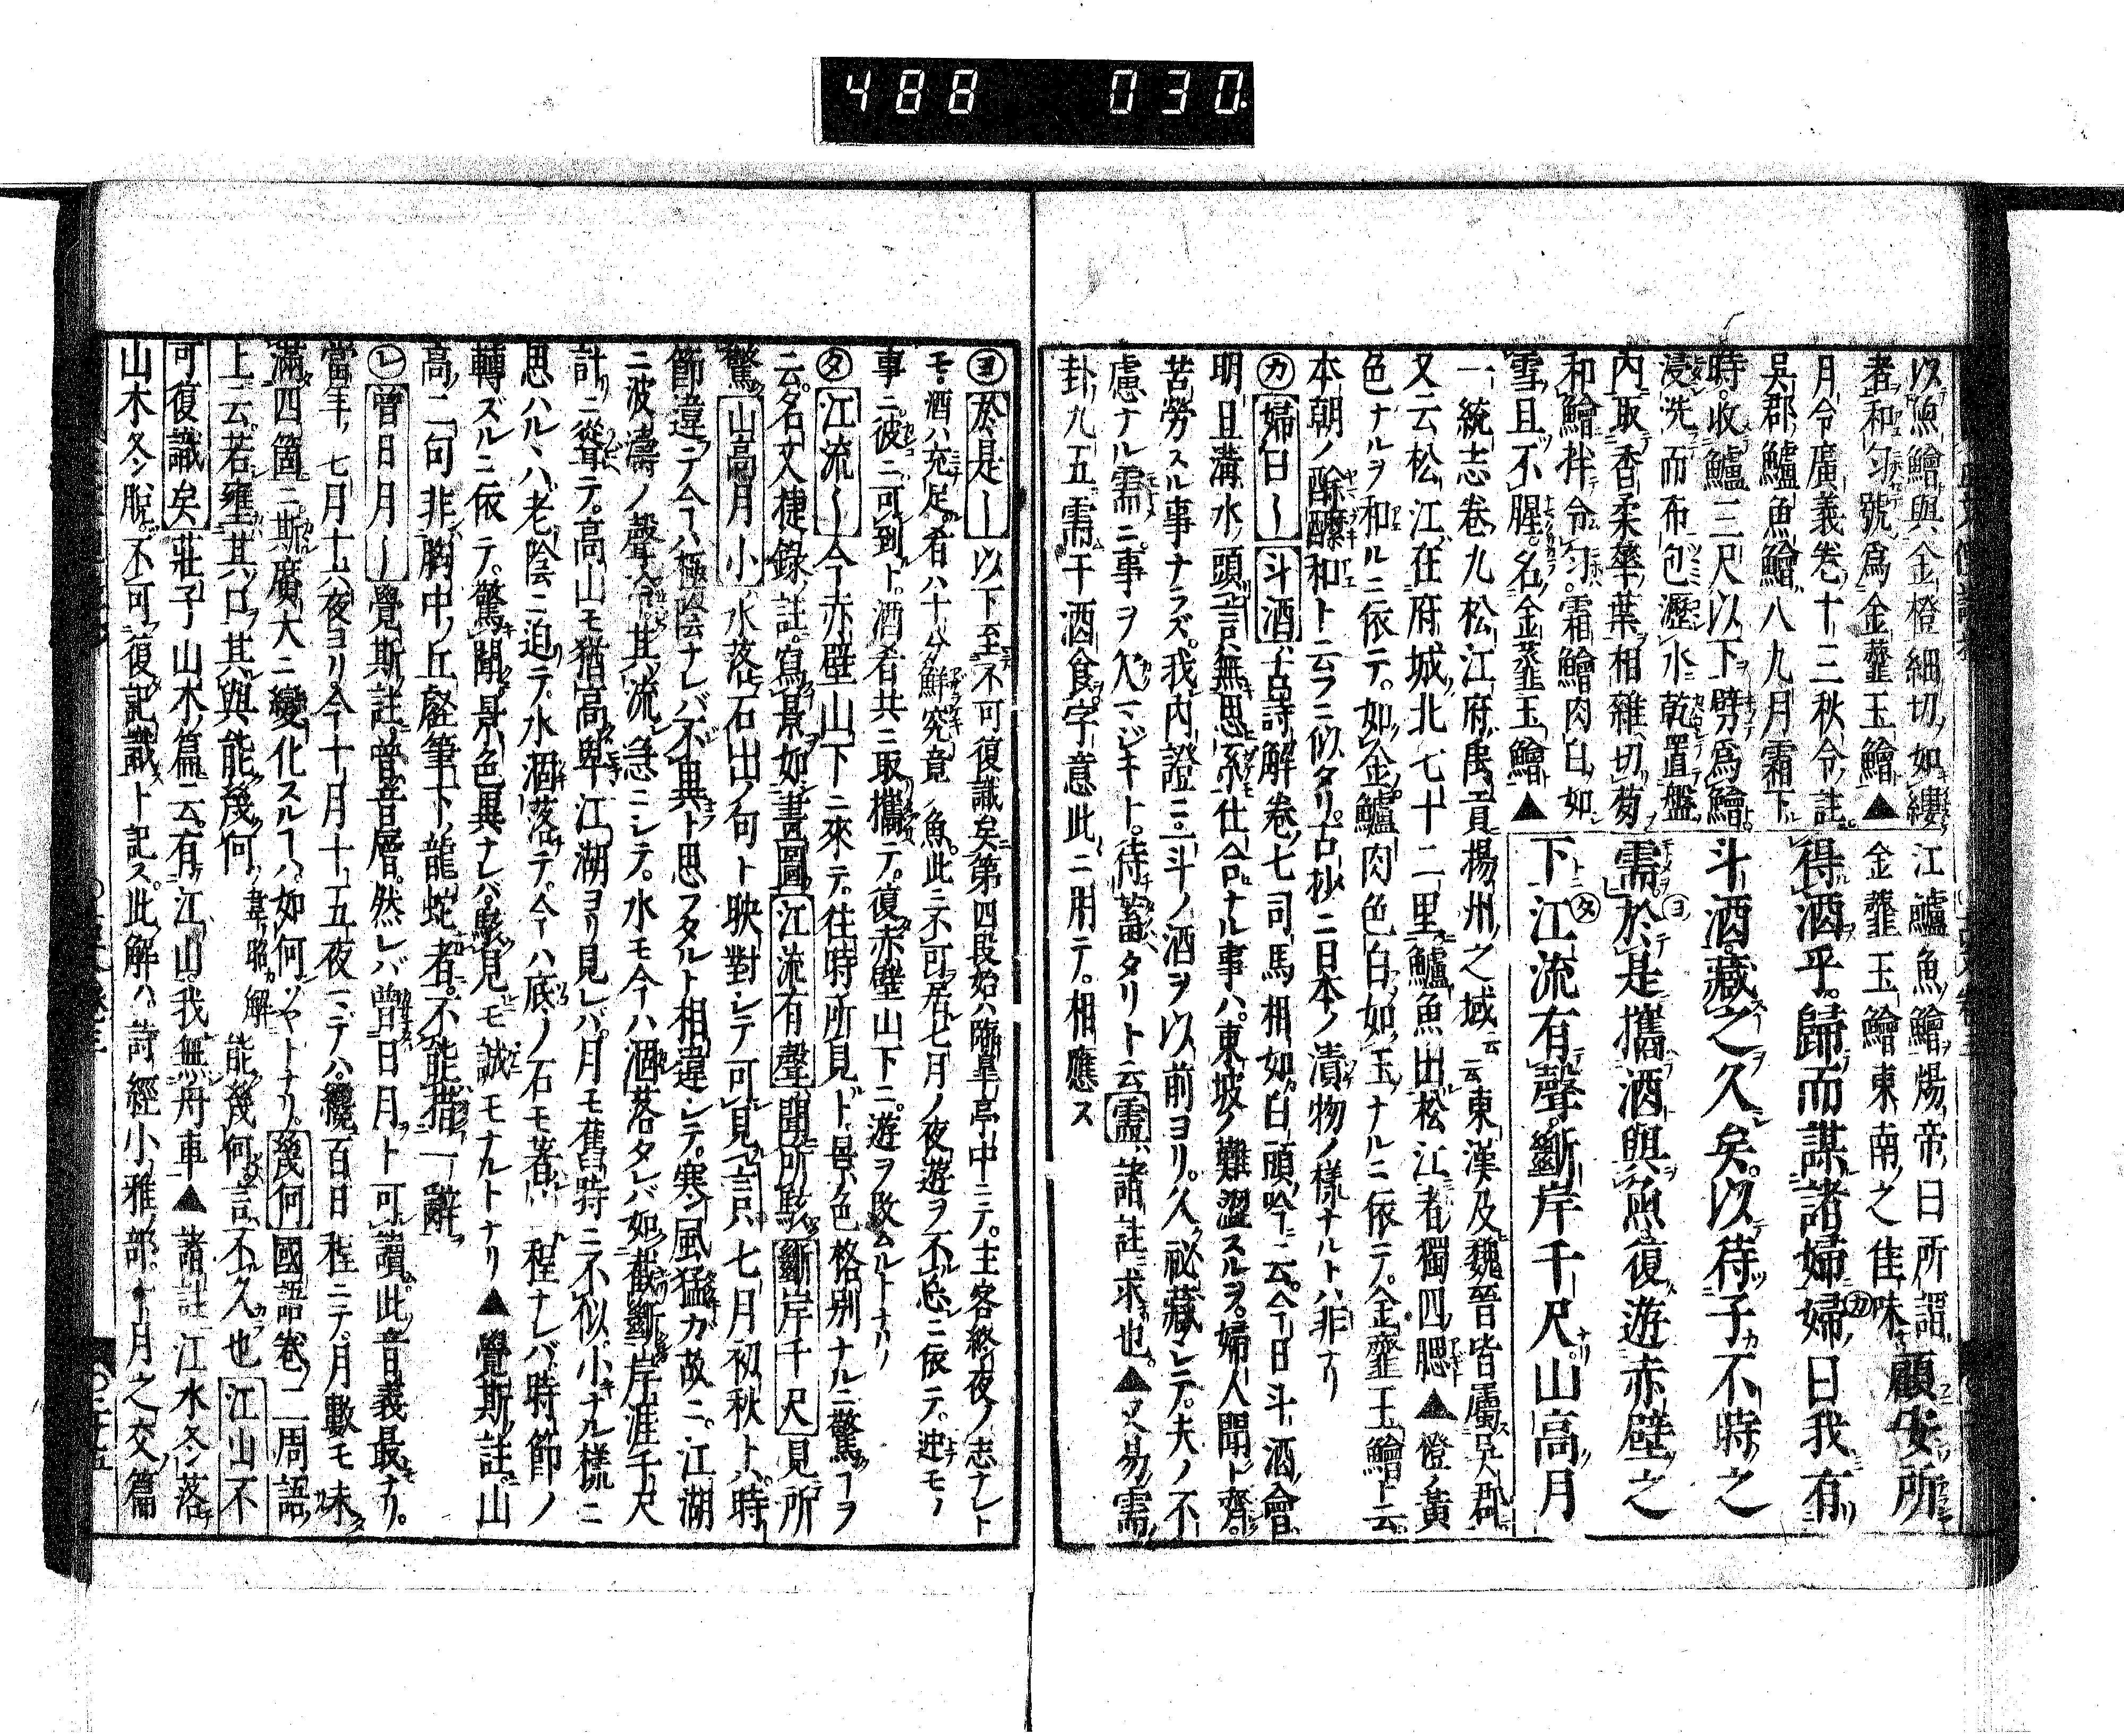 488 030
以魚鱠與金橙細切如縷
者和匀號爲金虀玉鱠▲
月令廣義卷十三秋令註
吳郡鱸魚鱠八九月霜下
時收鱸三尺以下劈爲鱠
浸洗而布包瀝水乾置盤
內取香柔葉相雜切菊
和鱠拌令匀霜鱠肉白如
雪且不腥名金虀玉鱠▲
江鱸魚鱠煬帝曰所謂
金虀玉鱠東南之佳味
顧安所
得酒乎歸而謀諸婦婦曰我有
斗酒藏之久矣以待子不時之
需於是攜酒與魚復遊赤壁之
下江流有聲斷岸千尺山高月
一統志卷九松江府禹貢揚州之域云云東漢及魏晉皆屬吳郡
又云松江在府城北七十二里鱸魚出松江者獨四腮▲橙ノ黃
色ナルヲ和ルニ依テ如金鱸肉色白如玉ナルニ依テ金虀玉鱠ト云
本朝ノ酴醿和ト云フニ似タリ古抄ニ日本ノ漬物ノ樣ナルトハ非ナリ
カ 婦曰〱 斗酒 古詩解卷七司馬相如白頭吟ニ云今日斗酒會
明旦溝水頭言無思系仕合ナル事ハ東坡ノ難澀スルヲ婦人聞ト齊
苦勞スル事ナラズ我內證ニ斗ノ酒ヲ以前ヨリ久祕藏シテ夫ノ不
慮ナル需ニ事ヲ欠マジキト待蓄タリト云 需 諸註求也▲又易需
卦九五需于酒食字意此ニ用テ相應ス
ヨ 於是〱 以下至不可復識矣第四段始ハ臨皐亭中ニテ主客終夜ノ志ナレト
モ酒ハ充足肴ハ十分鮮究竟ノ魚此ニ不可居七月ノ夜遊ヲ不忘ニ依テ迚モノ
事ニ彼ニ可到ト酒肴共ニ取攜テ復赤壁山下ニ遊ヲ改ムルトナリ
タ 江流〱 今赤壁山下ニ來テ往時所見ト景色格別ナルニ驚コヲ
云名文捷錄註寫景如畫圖 江流有聲 聞所駭 斷岸千尺 見所
驚 山高月小 水落石出ノ句ト映對シテ可見言ハ七月初秋ト時
節違テ今ハ極陰ナレバ不異ト思フタルト相違シテ寒風猛ガ故ニ江湖
ニ波濤ノ聲冷其流急ニシテ水モ今ハ涸落タレバ如截斷岸涯千尺
計ニ聳テ高山モ猶高卑江湖ヨリ見レバ月モ舊時ニ不似小ナル樣ニ
思ハルヽハ老陰ニ迫テ水涸落テ今ハ底ノ石モ著程ナレバ時節ノ
轉ズルニ依テ驚聞景色異ナレバ駭見モ誠モナルトナリ▲覺斯註山
高二句非胸中丘壑筆下龍蛇者不能措一辭
レ 曾日月〱 覺斯註曾音層然レバ曾日月ト可讀此音義最ナリ
當年七月十六夜ヨリ今十月十五夜ニデハ纔百日程ニテ月數モ未
滿四箇ニ斯廣大ニ變化スルコハ如何ゾヤトナリ 幾何 國語卷二周語
上云若壅其口其與能幾何 韋昭解能幾何言不久也 江山不
可復識矣 莊子山木篇云有江山我無舟車▲諸註江水冬落
山木冬脫不可復記識ト記ス此解ハ詩經小雅部十月之交篇